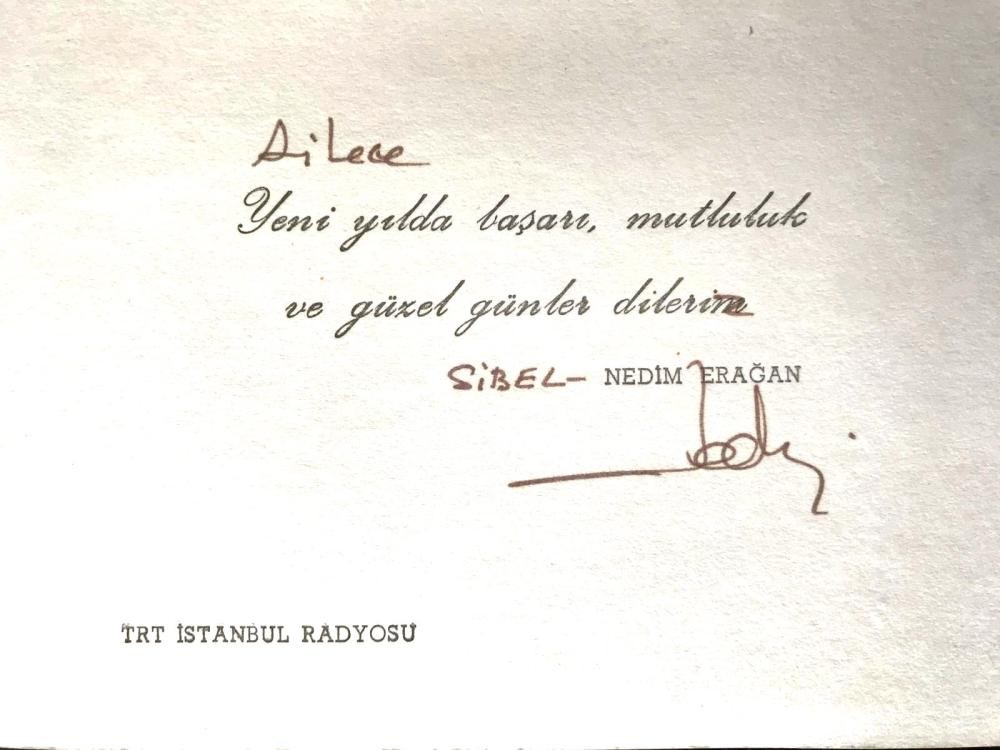 Ailece
Yeni yılda başarı, mutluluk
ve güzel günler dileriz
SİBEL- NEDİM ERAĞAN
TRT İSTANBUL RADYOSU